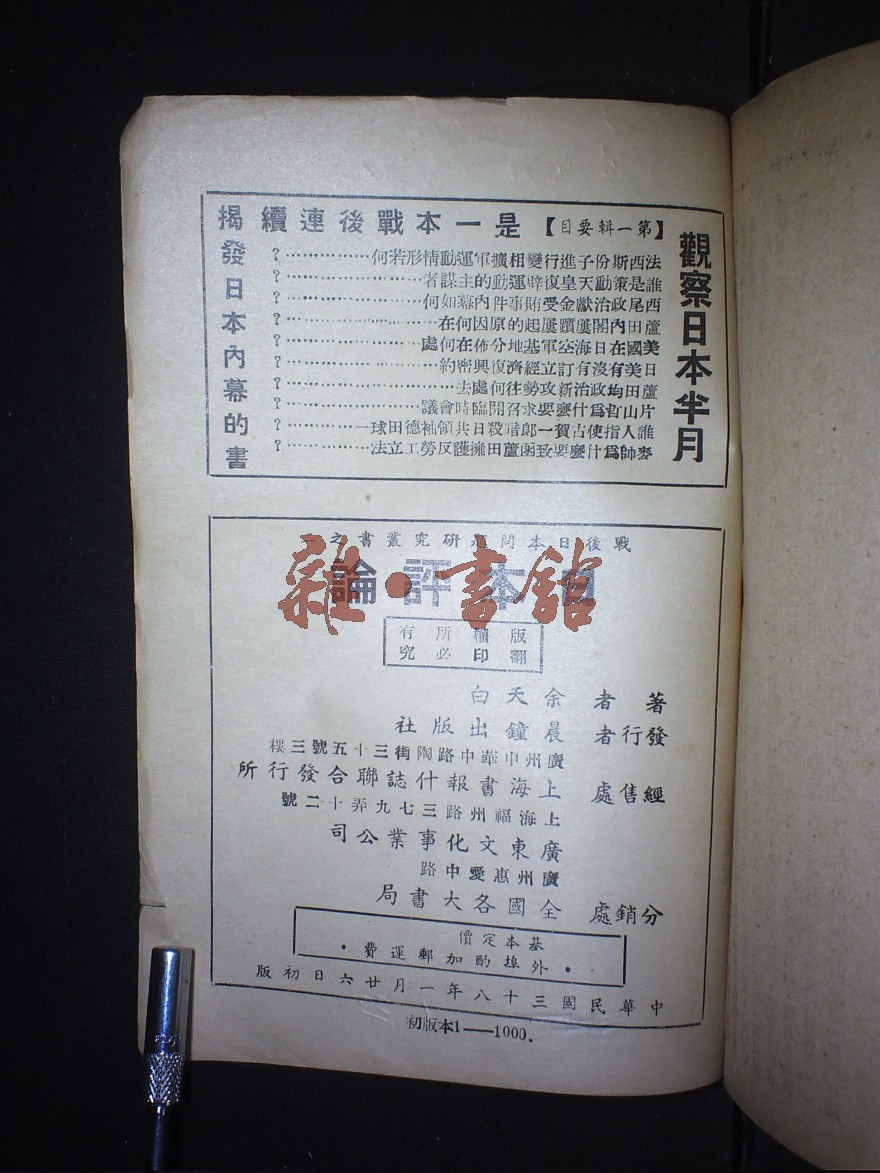 觀察日本半月
【第一輯要目】是一本戰後連續
揭發日本內幕的書
法西斯份子進行變相擴軍運動情形若何……………?
誰是策動天皇復辟運動的主謀者……………?
西尾政治獻金受賄事件內幕如何……………?
蘆田內閣屢躓屢起的原因何在……………?
美國在日海空軍基地分佈在何處……………?
日美有沒有訂立經濟復興密約……………?
蘆田均政治新攻勢往何處去……………?
片山哲爲什麼要求召開臨時會議……………?
誰人指使古賀一郎暗殺日共領袖德田球一……………?
麥帥爲什麼要致函蘆田擁護反勞工立法……………?
戰後日本問題研究叢書之一
日本評論
雜·書館
版權所有
翻印必究
著者 余天白
發行者 晨鐘出版社
廣州中華中路陶街三十五號三樓
經售處 上海書報什誌聯合發行所
上海福州路三七九弄十二號
廣東文化事業公司
廣州惠愛中路
分銷處 全國各大書局
基本定價
·外埠酌加郵運費·
中華民國三十八年一月廿六日初版
初版本1——1000.